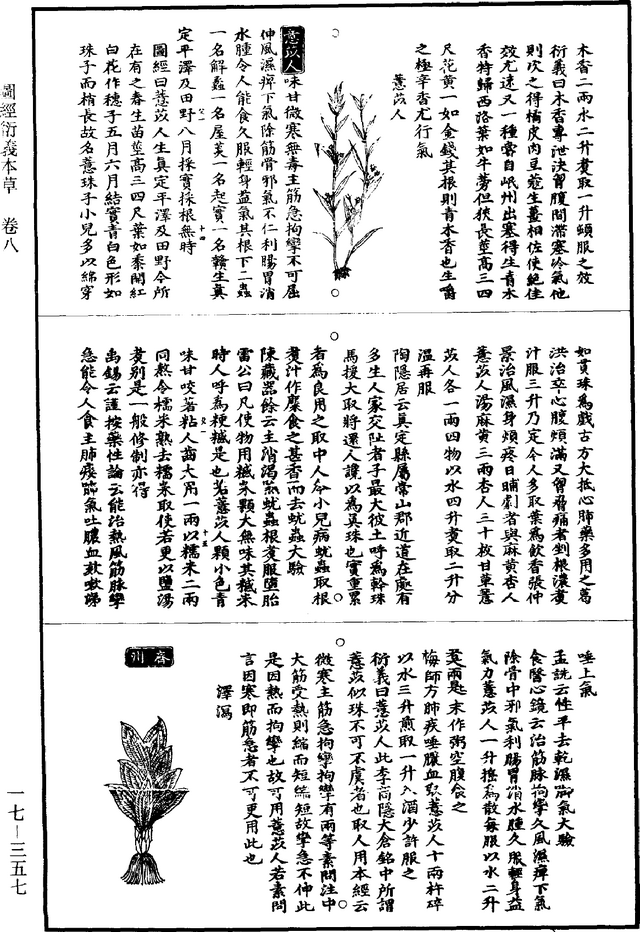 木香二兩水二升煑取一升頓服之效
衍義曰木香專泄決胷腹間滯塞冷氣他
則次之得橘皮肉豆蔲生薑相佐使絶佳
效尤速又一種嘗自岷州出塞得生青木
香持歸西洛葉如牛蒡但狹長莖高三四
尺花黄一如金錢其根則青木香也生嚼
之極辛香尤行氣
薏苡人
薏苡人味甘微寒無毒主筋急拘攣不可屈
伸風濕痺下氣除筋骨邪氣不仁利腸胃消
水腫令人能食久服輕身益氣其根下三蟲
一名解蠡一名屋菼一名起實一名贛生真
定平澤及田野八月採實採根無時
圖經曰薏苡人生真定平澤及田野今所
在有之春生苗莖高三四尺葉如黍開紅
白花作穗子五月六月結實青白色形如
珠子而稍長故名薏珠子小兒多以綿穿
如貫珠為戲古方大抵心肺藥多用之葛
洪治卒心腹煩滿又胷脅痛者剉根濃煑
汁服三升乃定今人多取葉為飲香張仲
景治風濕身煩疼日晡劇者與麻黄杏人
薏苡人湯麻黄三兩杏人三十枚甘草薏
苡人各一兩四物以水四升煑取二升分
温再服
陶隱居云真定縣屬常山郡近道在處有
多生人家交阯者子最大彼土呼為簳珠
馬援大取將還人讒以為真珠也實重累
者為良用之取中人今小兒病蚘蟲取根
煑汁作糜食之甚香而去蚘蟲大驗
陳藏器餘云主消渴煞蚘蟲根煑服墮胎
雷公曰凡使勿用𥻦米顆大無味其𥻦米
時人呼為粳𥻦是也若薏苡人顆小色青
味甘咬著粘人齒大用一兩以糯米二兩
同熬令糯米熟去糯米取使若更以鹽湯
煑別是一般修制亦得
禹錫云謹按藥性論云能治熱風筋脉攣
急能令人食主肺痿肺氣吐膿血欬嗽涕
唾上氣
孟詵云性平去乾濕脚氣大驗
食醫心鏡云治筋脉拘攣久風濕痺下氣
除骨中邪氣利腸胃消水腫久服輕身益
氣力薏苡人一升擣為散每服以水二升
煑兩匙末作粥空腹食之
梅師方肺疾唾膿血取薏苡人十兩杵碎
以水三升煎取一升入酒少許服之
衍義曰薏苡人此李商隱太倉銘中所謂
薏苡似珠不可不虞者也取人用本經云
微寒主筋急拘攣拘攣有兩等素問注中
大筋受熱則縮而短縮短故攣急不伸此
是因熱而拘攣也故可用薏苡人若素問
言因寒即筋急者不可更用此也
澤瀉
齊州
圖經衍義本草　卷八
一七—三五七